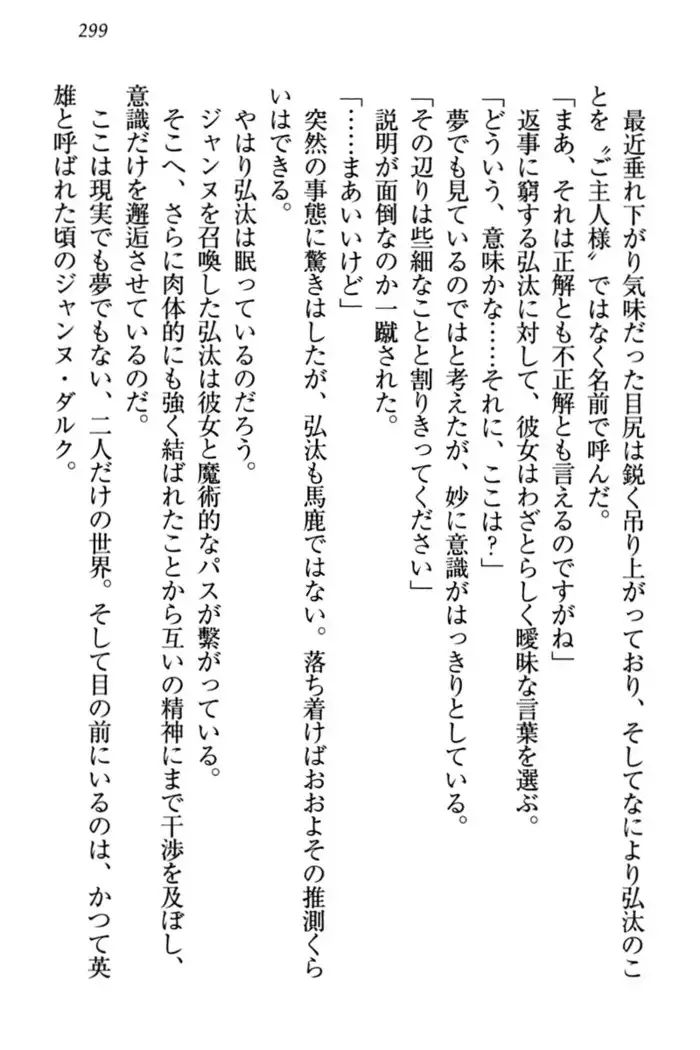 299
最近垂れ下がり気味だった目尻は鋭く吊り上がっており、そしてなにより弘汰のこ
とを〝ご主人様〟ではなく名前で呼んだ。
「まあ、それは正解とも不正解とも言えるのですがね」
返事に窮する弘汰に対して、彼女はわざとらしく曖昧な言葉を選ぶ。
「どういう、意味かな……それに、ここは？」
夢でも見ているのではと考えたが、妙に意識がはっきりとしている。
「その辺りは些細なことと割りきってください」
説明が面倒なのか一蹴された。
「……まあいいけど」
突然の事態に驚きはしたが、弘汰も馬鹿ではない。落ち着けばおおよその推測くら
いはできる。
やはり弘汰は眠っているのだろう。
ジャンヌを召喚した弘汰は彼女と魔術的なパスが繋がっている。
そこへ、さらに肉体的にも強く結ばれたことから互いの精神にまで干渉を及ぼし、
意識だけを邂逅させているのだ。
ここは現実でも夢でもない、二人だけの世界。そして目の前にいるのは、かつて英
雄と呼ばれた頃のジャンヌ・ダルク。